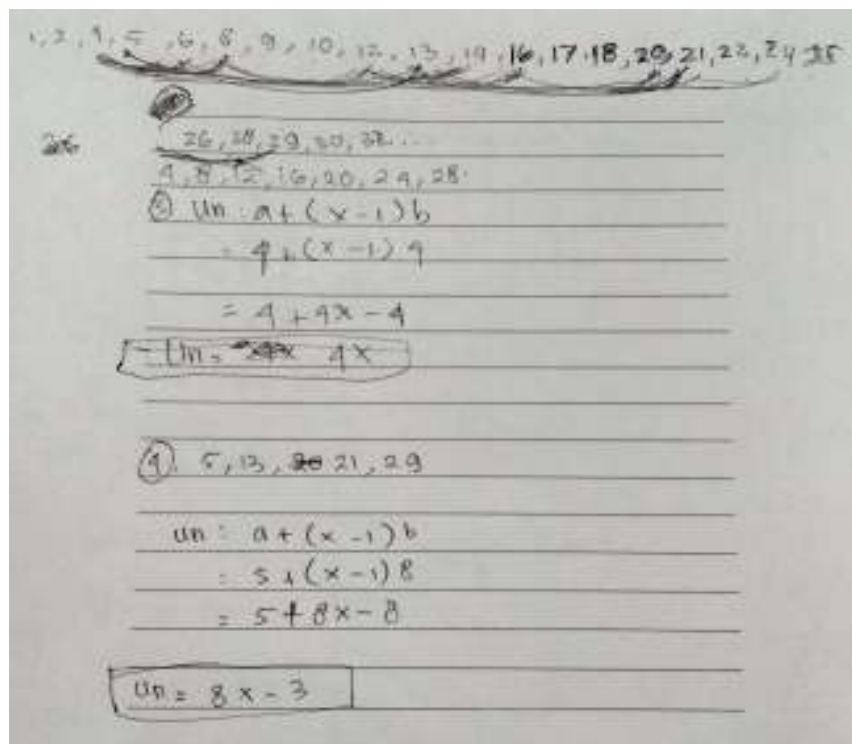 1, 2, 4, 5, 6, 8, 9, 10, 12, 13, 14, 16, 17, 18, 20, 21, 22, 24 25
26, 28, 29, 30, 32...
4, 8, 12, 16, 20, 24, 28.
③ Un : a + (x - 1) b
= 4 + (x - 1) 4
= 4 + 4x - 4
- Un = 4x
④. 5, 13, 21, 29
Un : a + (x - 1) b
: 5 + (x - 1) 8
= 5 + 8x - 8
Un = 8x - 3